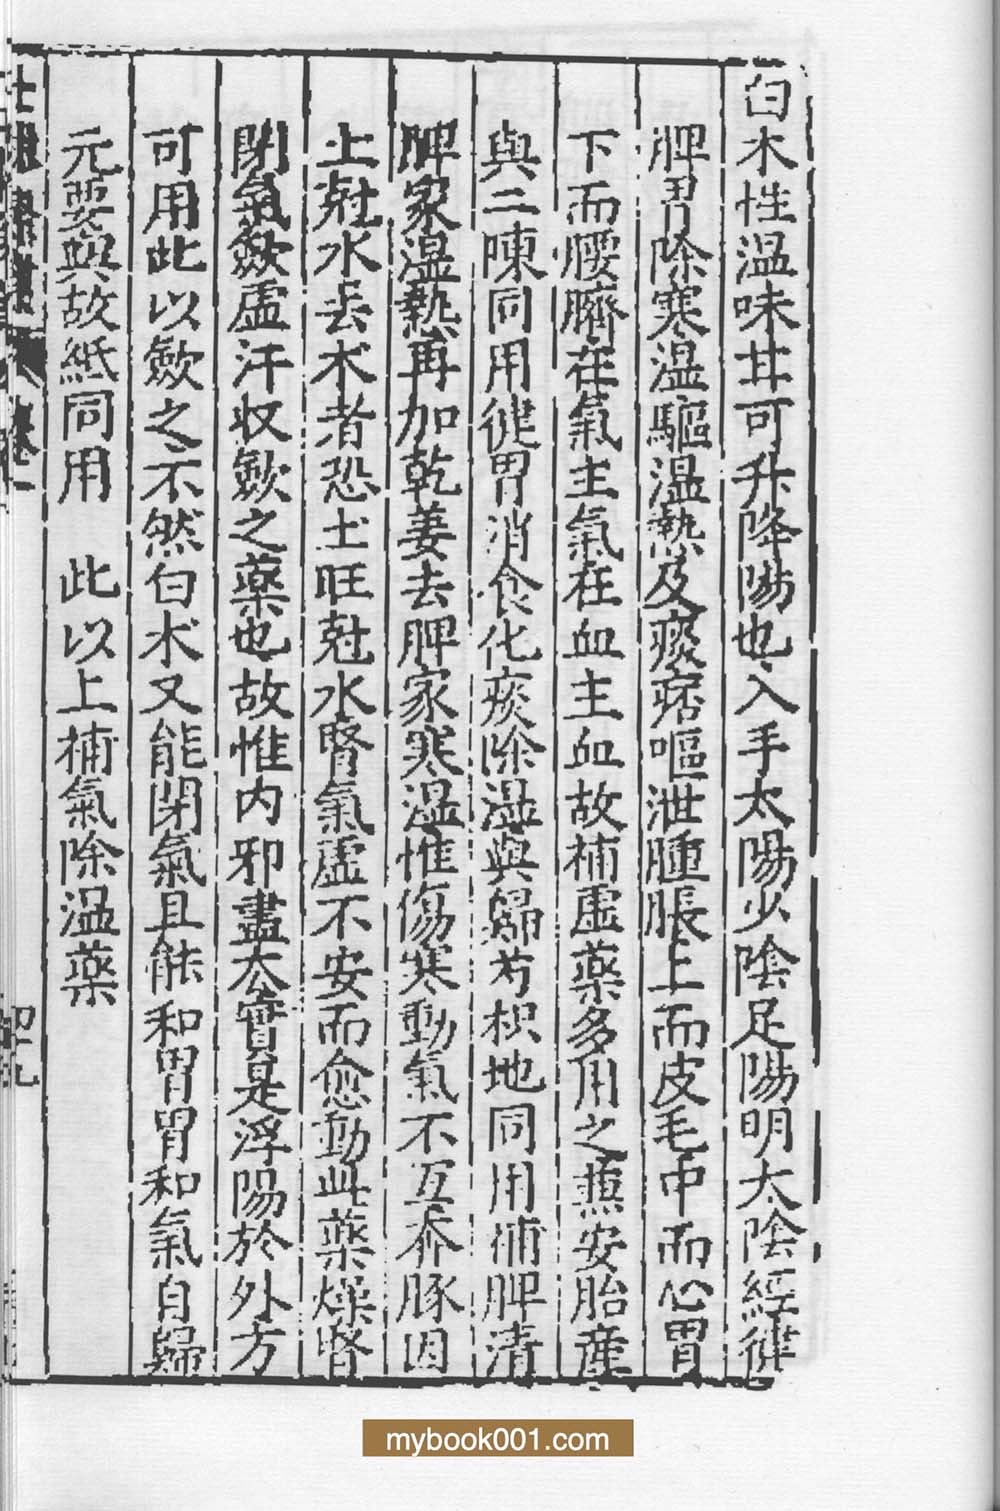 白朮性温味甘可升降陽也入手太陽少陰足陽明太陰經健
脾胃除寒温驅温熱及痰痞嘔泄腫脹上而皮毛中而心胃
下而腰臍在氣主氣在血主血故補虚薬多用之兼安胎産
與二陳同用健胃消食化痰除湿與歸芍枳地同用補脾清
脾家湿熱再加乾姜去脾家寒湿惟傷寒動氣不互奔豚因
上尅水去朮者恐土旺尅水腎氣虚不安而愈動此薬燥腎
閉氣歛虚汗収歛之薬也故惟内邪盡太實是浮陽於外方
可用此以歛之不然白朮又能閉氣且能和胃胃和氣自歸
元要與故紙同用 此以上補氣除温薬
mybook001.com